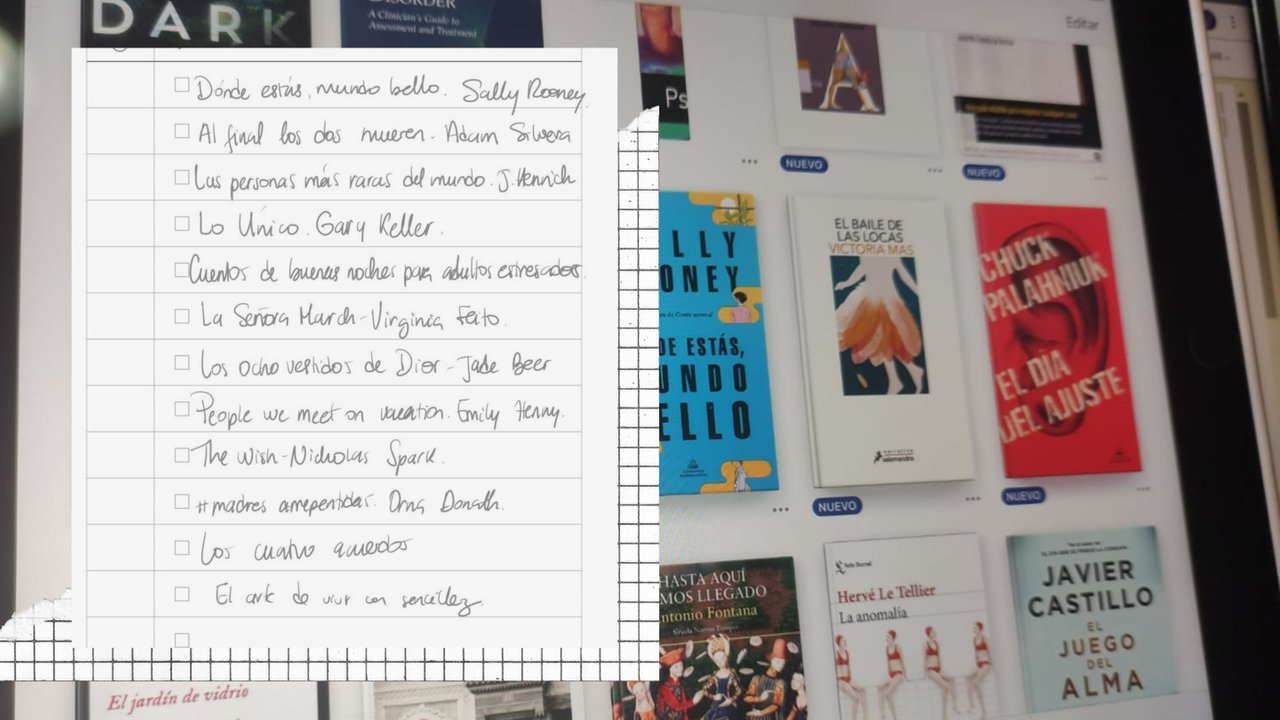 DARK
DISORDER
A Clinician's Guide to
Assessment and Treatment
Editar
Ps
A
NUEVO
NUEVO
Dónde estás, mundo bello. Sally Rooney.
Al final los dos mueren. Adam Silvera
Las personas más raras del mundo. J. Henrich
Lo Único. Gary Keller.
Cuentos de buenas noches para adultos estresados.
La Señora March - Virginia Feito.
Los ocho vestidos de Dior - Jade Beer
People we meet on vacation. Emily Henry.
The Wish - Nicholas Spark.
# madres arrepentidas. Orna Donath.
Los cuatro acuerdos
El arte de vivir con sencillez
LLY
ONEY
de Gente normal
DE ESTÁS,
UNDO
ELLO
EL BAILE DE
LAS LOCAS
VICTORIA MAS
narrativa
salamandra
CHUCK
PALAHNIUK
EL DÍA
DEL AJUSTE
NUEVO
NUEVO
HASTA AQUÍ
MOS LLEGADO
ntonio Fontana
Siruela Nuevos Tiempos
Seix Barral
Hervé Le Tellier
La anomalía
JAVIER
CASTILLO
EL
JUEGO
DEL
ALMA
El jardín de vidrio